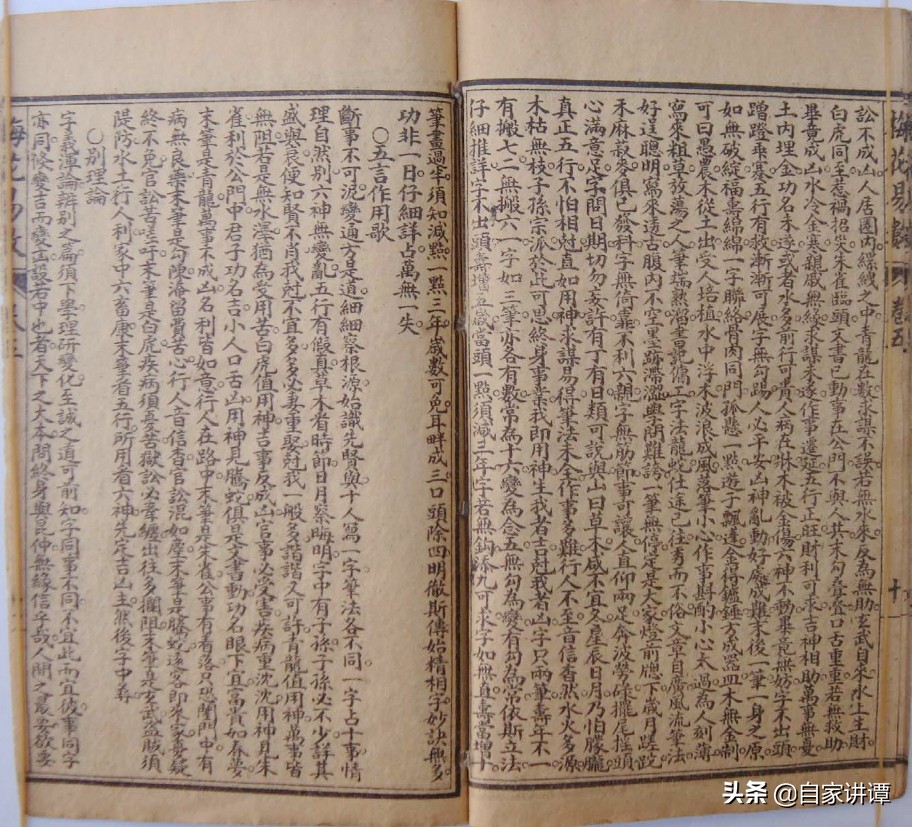 訟不成凶人居圈內縲絏之中青龍在數求謀不誤若無水來反為無助玄武自來水上生財
白虎同至惹禍招尖朱雀臨頭文書已動事在公門不與人共末勾疊疊口舌重重若無救助
畢竟成凶水冷金寒親戚無緣求謀未遂作事遷延五行正旺財利可求吉神相助萬事無憂
土內埋金功名未遂或者水多前行可貴人病在牀木被金傷六神不動畢竟無妨字不出頭
蹭蹬乖蹇五行有救漸漸可展字無勾踢人必平安凶神亂動好處成難末後一筆一身之原
如無破綻福壽綿綿一字聯絡骨肉同門孤懸一點遊子飄逢金得鑪錘方成器皿木無金制
可曰愚農木從土出受人培植水中浮木波浪成風落筆小心作事斟酌小心太過為人刻薄
寫來粗草放蕩之人筆端熟溜書記傭工字法龍蛇仕途已往秀而不俗文章自廣風流筆法
好逞聰明寫來遠古腹內不空墨跡滯澀學問難誇一筆無停定是大家燈前窗下歲月蹉跎
禾麻菽麥俱已發科字無倚靠不利六親字無筋節事可讓人直仰兩足奔波勞碌擺尾搖頭
心滿意足字問日期切勿妄許有丁有日類可說與山曰草木咸不宜冬星辰日月乃怕朦朧
真正五行不怕相對直如用神求謀易得筆法未全作事多難行人不至音信杳然水火多源
木枯無枝子孫宗派於此可思終身事業我即用神生我者吉尅我者凶字只兩筆壽年不一
有搬七二無搬六一字如三筆亦各有數常為十六變為念五無勾為變有勾為常依斯立法
仔細推詳字不出頭壽增五歲當頭一點須減三年字若無鈎添九可求字如無直壽高增十
筆畫過半須知減點一點三年歲數可免耳畔成三口頭除四明徹斯傳始精相字妙訣無多
功非一日仔細詳占萬無一失
○五言作用歌
斷事不可泥變通方是道細細察根源始識先賢與十人寫一字筆法各不同一字占十事情
理自然別六神無變亂五行有假真草木看時節日月察晦明字中有子孫子孫必不少詳其
盛與衰便知賢不肖我尅不宜多多必妻重娶尅我一般多諧諧人可許青龍值用神萬事皆
無阻若是無水澤猶為受用苦白虎值用神吉事反成凶官事必受害疾病重沈沈用神見朱
雀利於公門中君子功名吉小人口舌凶用神見騰蛇俱是文書動功名眼下宜富貴如春夢
末筆是青龍萬事不成凶名利皆如意行人在路中末筆是朱雀公事有着落只恐閨門中有
病無良藥末筆是勾陳淹留費苦心行人音信杳官訟混如塵末筆是騰蛇逐客即來家憂疑
終不免官訟苦嗟呀末筆是白虎疾病須憂苦獄訟必牽纏出往多攔阻末筆是玄武盜賊須
隄防水土行人利家中六畜康末筆看五行所用看六神先定吉凶主然後字中尋
○別理論
字義渾論辨別之論須下學理研變化至誠之道可前知字同事不同不宜此而宜彼事同字
亦同條變吉而變凶設若中也者天下之大本問終身與昆仲無緣信字哉人間之最要欲妄
梅花易數 卷五
十
头条 @自家讲谭